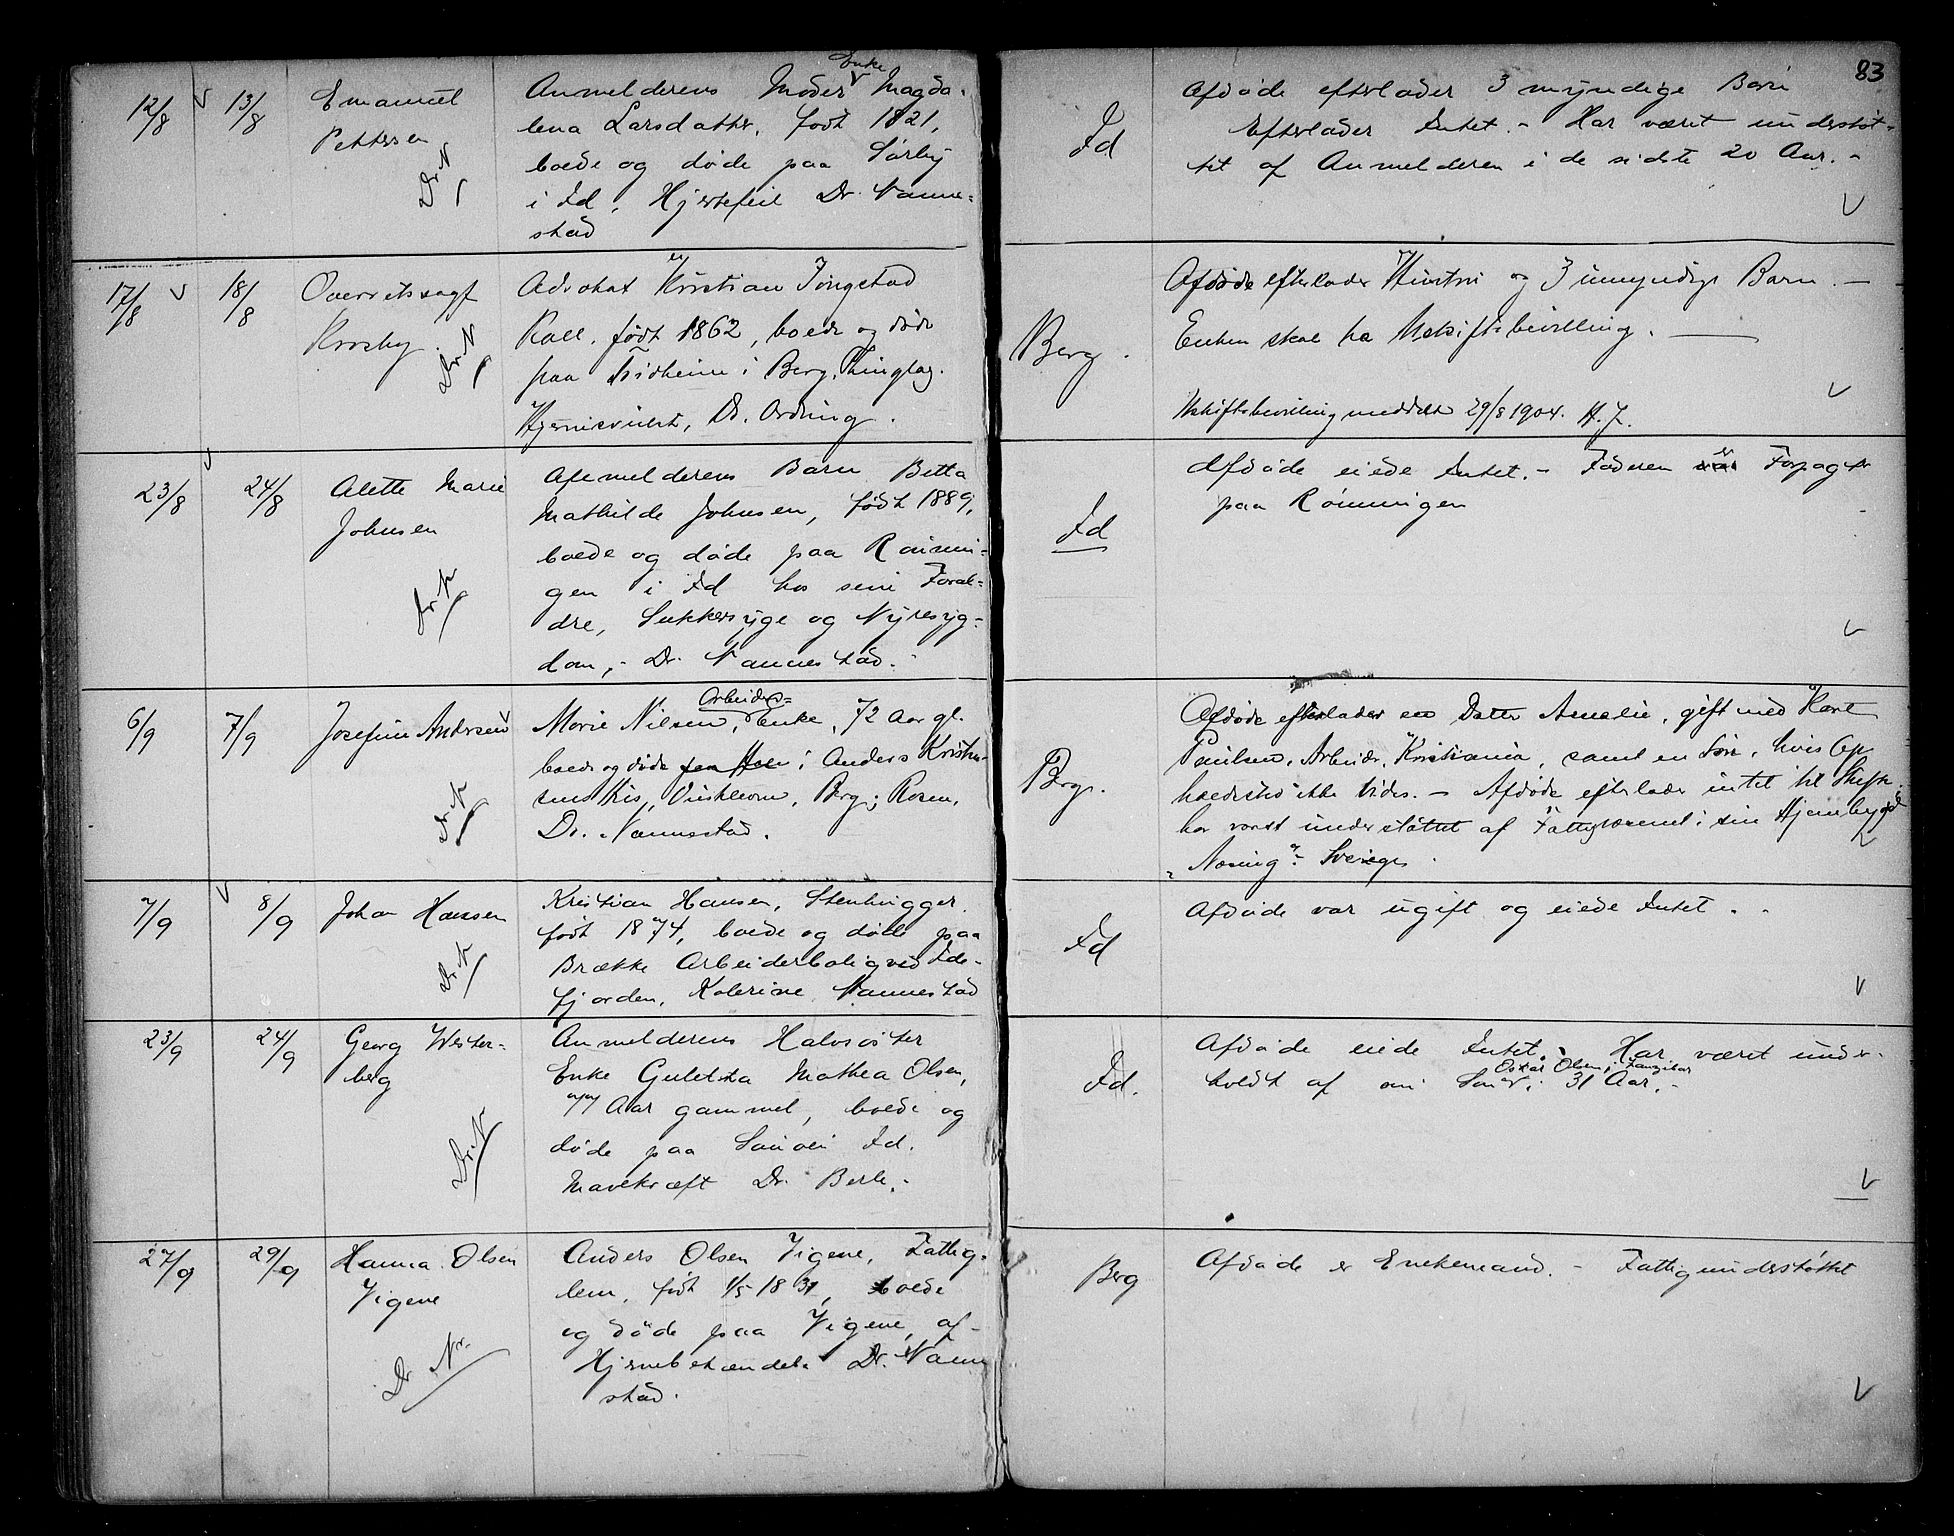 83
12/8 13/8 Emanuel
Pettersen
Dr. N
Anmelderens Moder Enke Magda-
lena Larsdatter, født 1821,
boede og døde paa Sørby
i Id, Hjertefeil Dr. Nanne-
stad
Id
Afdøde efterlader 3 myndige Børn
Efterlader Intet. - Har været understøt-
tet af Anmelderen i de sidste 20 Aar. -
17/8 18/8 Overretssagf
Krosby.
Dr. N
Advokat Kristian Tingstad
født 1862, boede og døde
paa i Berg Thinglag.
Hjernesvulst, Dr. Ording.
Berg.
Afdøde efterlader Hustru og 3 umyndige Børn. -
Enken skal ha Uskiftebevilling.
Uskiftebevilling meddelt 29/8 1904.
23/8 24/8 Alette Marie
Johnsen
Dr. N
Anmelderens Barn Betta
Mathilde Johnsen, født 1889,
boede og døde paa Rønnin-
gen i Id hos sine Foræl-
dre, Sukkersyge og Nyresyg-
dom, - Dr. Nannestad. -
Id
Afdøde eiede Intet. - Faderen er Forpagter
paa Rønningen
6/9 7/9 Josefine Andersen
Dr. N
Marie Nilsen, Arbeider- Enke, 72 Aar gl.
boede og døde i Anders Kristen-
sens Hus, Berg; Rosen,
Dr. Nannestad.
Berg.
Afdøde efterlader en Datter Amalie, gift med Karl
Paulsen, Arbeider, Kristiania, samt en Søn, hvis Op
holdssted ikke vides. - Afdøde efterlader intet til Skifte.
har været understøttet af Fattigvæsenet i sin Hjembygd
"Näsinge" - Sverige.
7/9 8/9 Johan Hansen
Dr. N
Kristian Hansen, Stenhugger,
født 1874, boede og døde paa
Brække Arbeiderbolig ved Ide-
fjorden, Kolerine Nannestad
Id
Afdøde var ugift og eiede Intet. -
23/9 24/9 Georg Wester-
berg
Dr. N
Anmelderens Halvsøster
Enke Guletta Mathea Olsen,
77 Aar gammel, boede og
døde paa Id.
Mavekræft Dr. Berle. -
Id.
Afdøde eiede Intet. - Har været under-
Oskar Olsen, i Zanzibar
holdt af sin Søn i 31 Aar. -
27/9 29/9 Hanna Olsen
Vigene
Dr. N.
Anders Olsen Vigene, Fattig-
lem, født 1/5 1831, boede
og døde paa Vigene, af -
Hjernebetændelse Dr. Nanne
stad.
Berg
Afdøde er Enkemand. - Fattigunderstøttet